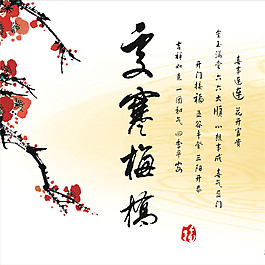 喜事连连 花开富贵
金玉满堂 六六大顺 心想事成 喜气盈门
开门接福 五谷丰登 三阳开泰
吉祥如意 一团和气 四季平安
寒梅